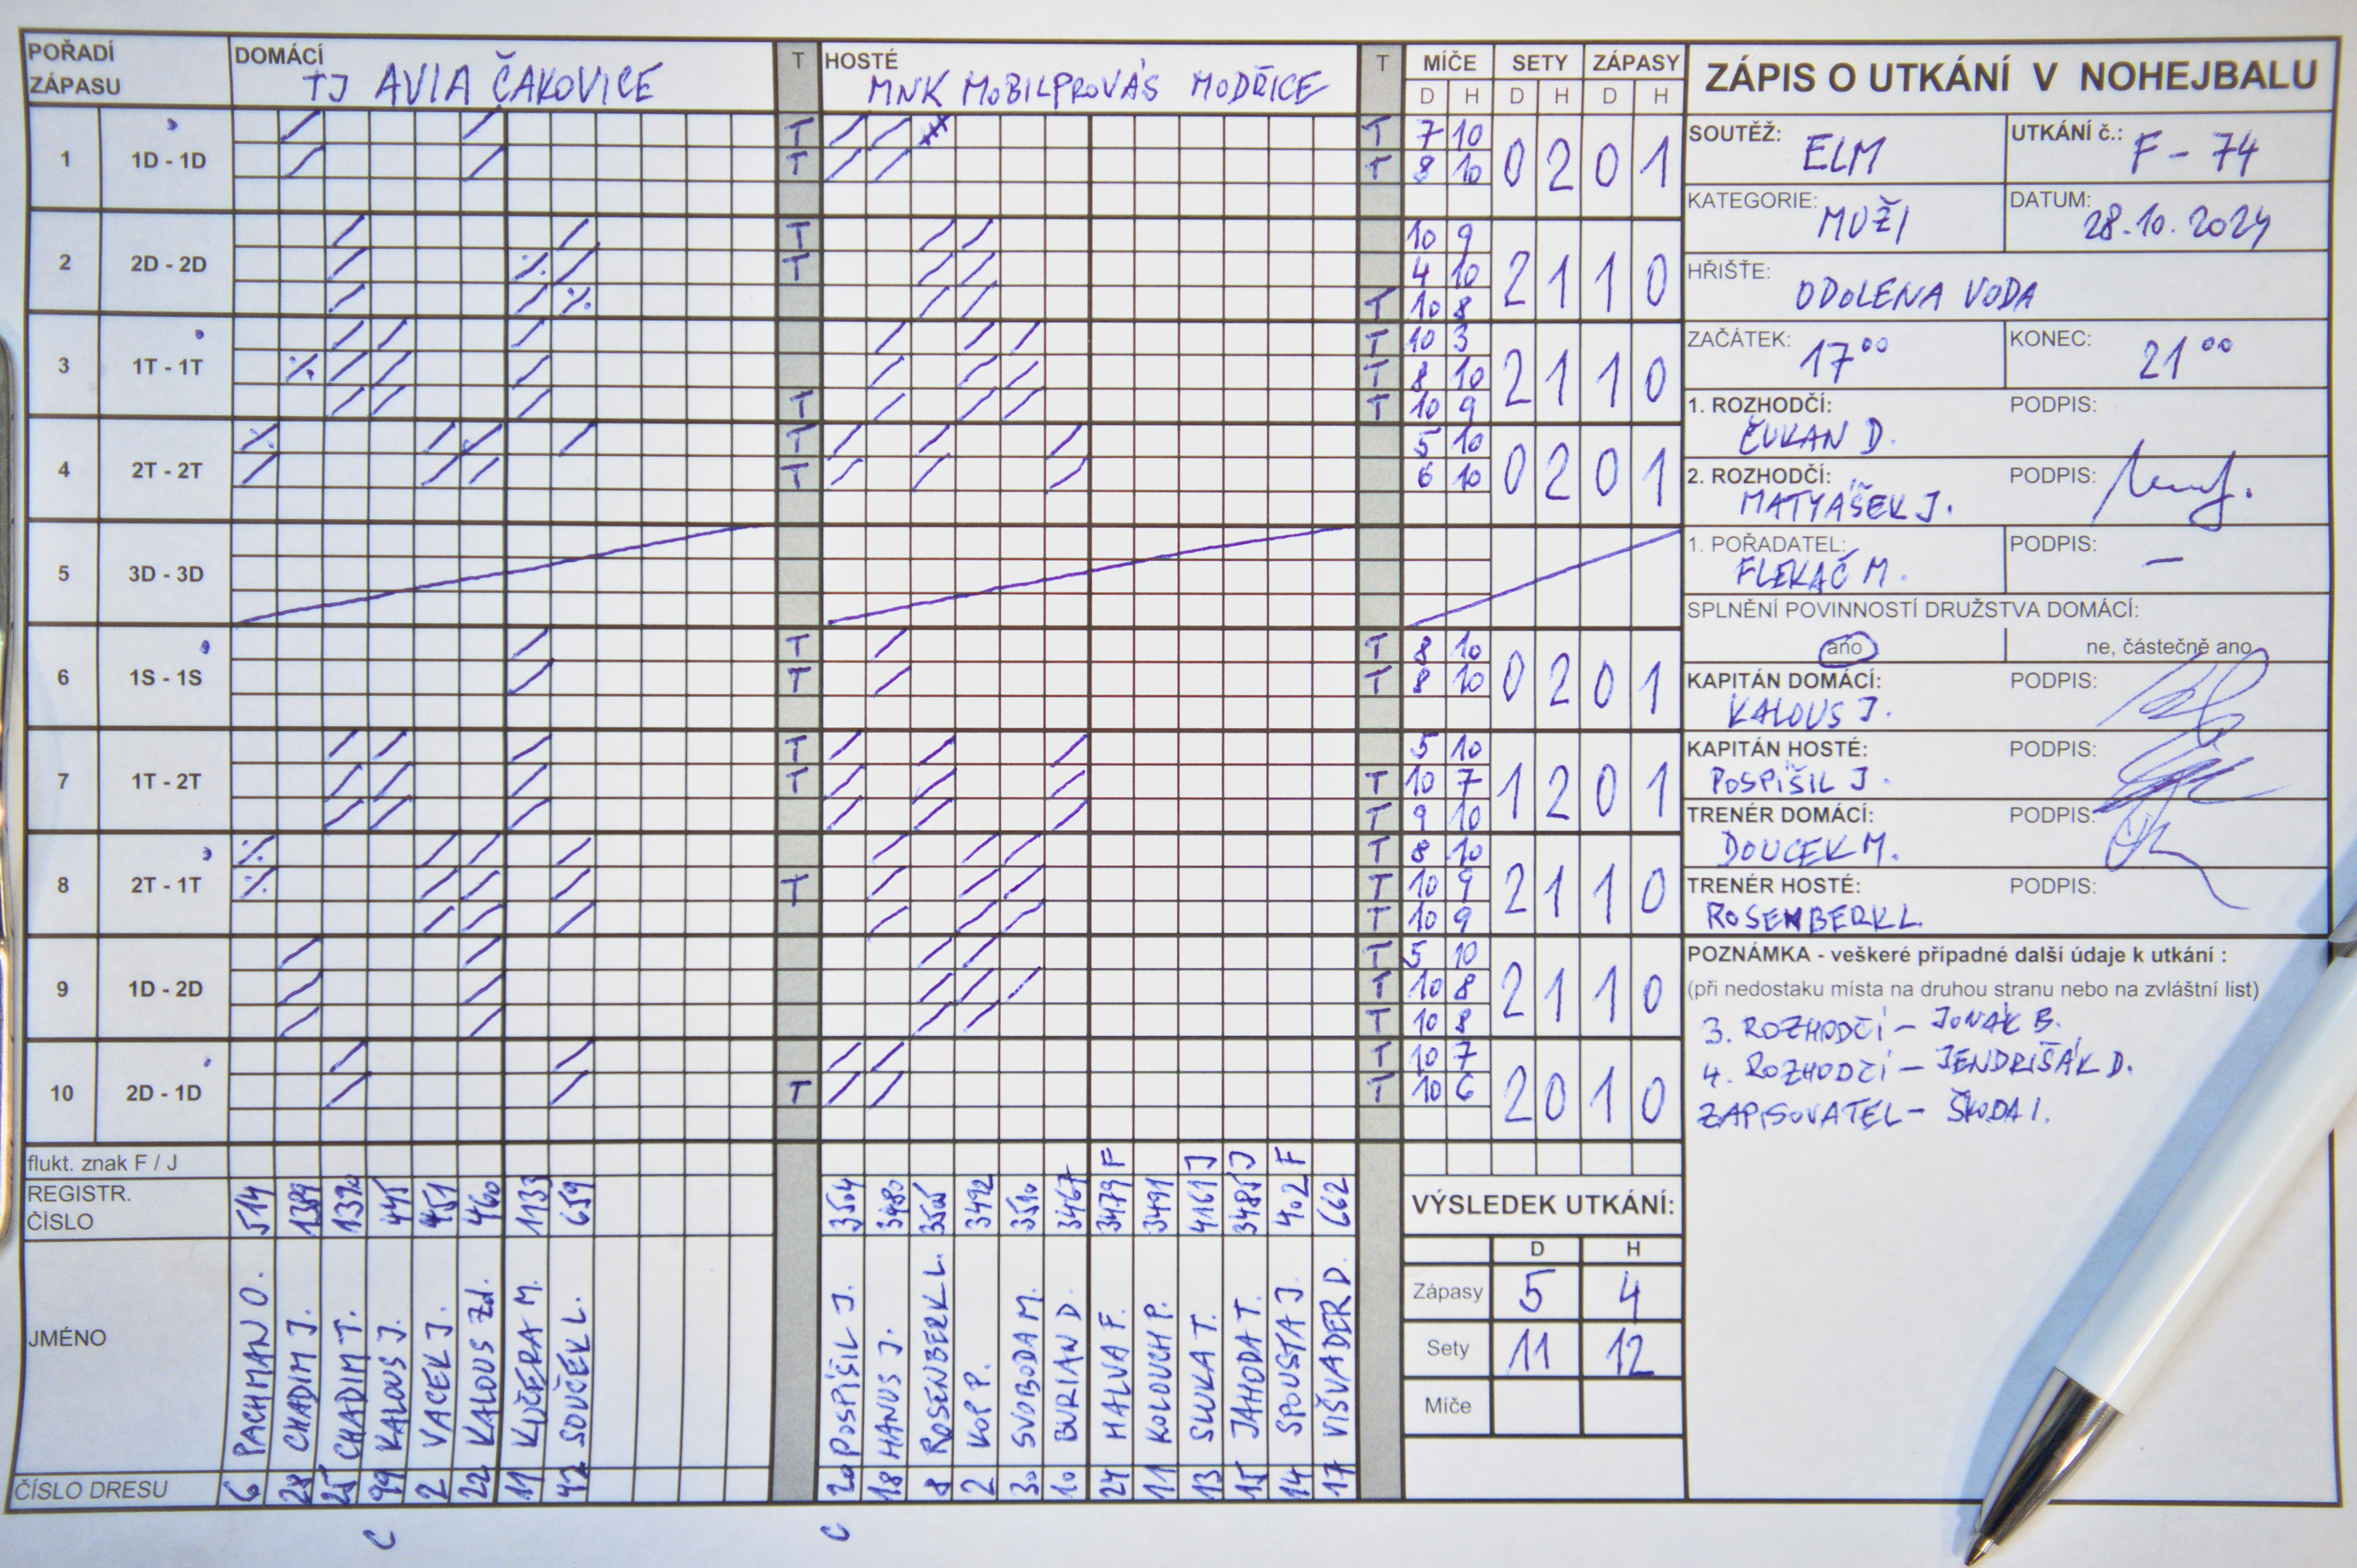 POŘADÍ ZÁPASU
DOMÁCÍ
TJ AVIA ČAKOVICE
T
HOSTÉ
MNK MOBILPROVÁS MODŘICE
T
MÍČE SETY ZÁPASY
D H D H D H
1 1D - 1D T T 7 10 0 2 0 1
T T 8 10
2 2D - 2D T 10 9 2 1 1 0
T 4 10
T 10 8
3 1T - 1T T 10 3 2 1 1 0
T 8 10
T T 10 9
4 2T - 2T T 5 10 0 2 0 1
T 6 10
5 3D - 3D
6 1S - 1S T T 8 10 0 2 0 1
T T 8 10
7 1T - 2T T 5 10 1 2 0 1
T T 10 7
T 9 10
8 2T - 1T T 8 10 2 1 1 0
T T 10 9
T 10 9
9 1D - 2D T 5 10 2 1 1 0
T 10 8
T 10 8
10 2D - 1D T 10 7 2 0 1 0
T T 10 6
flukt. znak F / J F J J F
REGISTR. ČÍSLO
514 1389 1390 445 451 460 1133 659
3504 3480 3505 3492 3510 3467 3479 3491 4161 3485 402 662
JMÉNO
PACHMAN O.
CHADIM J.
CHADIM T.
KALOUS J.
VACEK J.
KALOUS Zd.
KUČERA M.
SOUČEK L.
POSPÍŠIL J.
HANUS J.
ROSENBERK L.
KOP P.
SVOBODA M.
BURIAN D.
HALVA F.
KOLOUCH P.
SLUKA T.
JAHODA T.
SPOUSTA J.
VIŠVADER D.
ČÍSLO DRESU
6 28 25 99 2 22 11 42
20 18 8 2 30 10 24 11 13 15 14 17
C C
VÝSLEDEK UTKÁNÍ:
D H
Zápasy 5 4
Sety 11 12
Míče
ZÁPIS O UTKÁNÍ V NOHEJBALU
SOUTĚŽ: ELM
UTKÁNÍ č.: F - 74
KATEGORIE: MUŽI
DATUM: 28.10.2024
HŘIŠTĚ: ODOLENA VODA
ZAČÁTEK: 17⁰⁰
KONEC: 21⁰⁰
1. ROZHODČÍ: PODPIS:
ČUKAN D.
2. ROZHODČÍ: PODPIS:
MATYÁŠEK J.
1. POŘADATEL: PODPIS:
FLEKAČ M. —
SPLNĚNÍ POVINNOSTÍ DRUŽSTVA DOMÁCÍ:
ano ne, částečně ano
KAPITÁN DOMÁCÍ: PODPIS:
KALOUS J.
KAPITÁN HOSTÉ: PODPIS:
POSPÍŠIL J.
TRENÉR DOMÁCÍ: PODPIS:
DOUCEK M.
TRENÉR HOSTÉ: PODPIS:
ROSENBERK L.
POZNÁMKA - veškeré případné další údaje k utkání :
(při nedostaku místa na druhou stranu nebo na zvláštní list)
3. ROZHODČÍ - JONÁK B.
4. ROZHODČÍ - JENDRIŠÁK D.
ZAPISOVATEL - ŠKODA I.